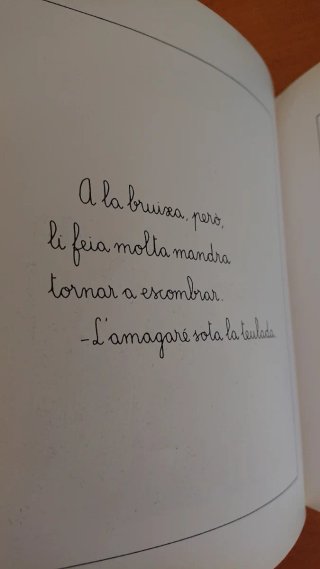 A la bruixa, però,
li feia molta mandra
tornar a escombrar.
-L'amagaré sota la teulada